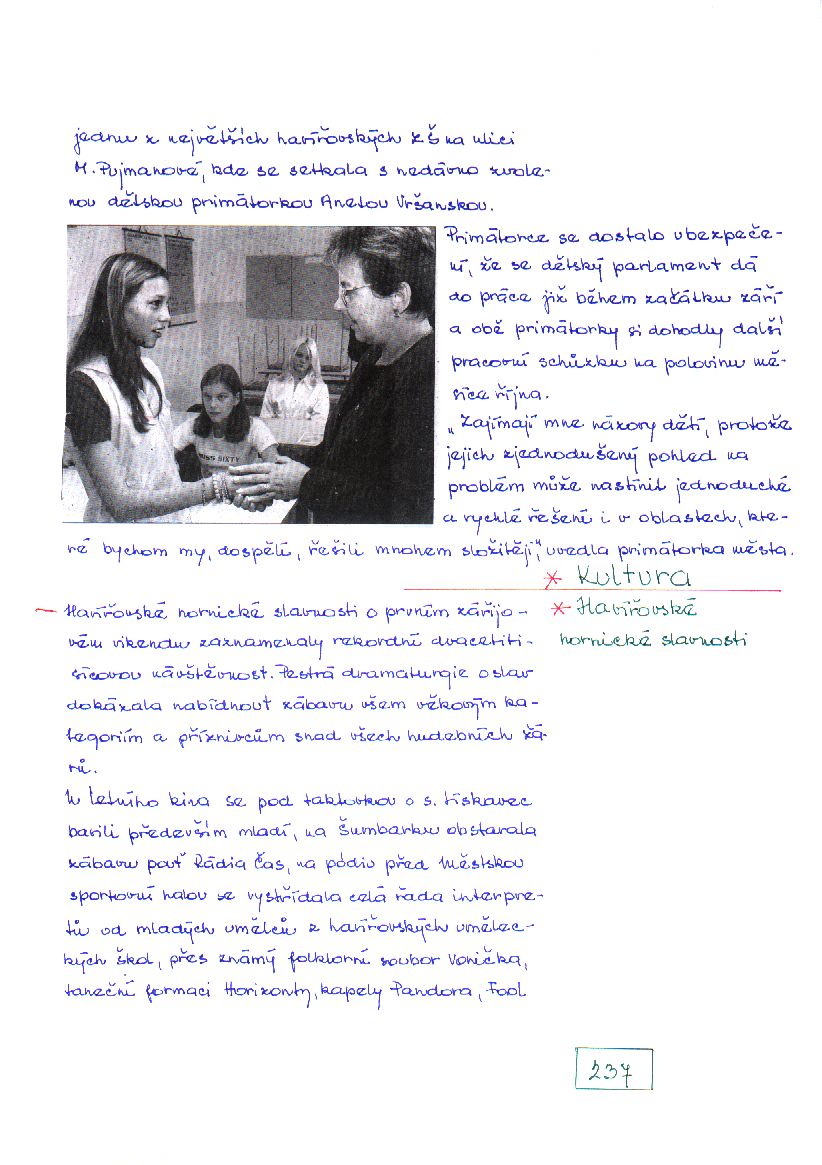 jednu z největších havířovských ZŠ na ulici
M. Pujmanové, kde se setkala s nedávno zvole-
nou dětskou primátorkou Anetou Vršanskou.
Primátorce se dostalo ubezpeče-
ní, že se dětský parlament dá
do práce již během začátku září
a obě primátorky si dohodly další
pracovní schůzku na polovinu mě-
síce října.
„Zajímají mne názory dětí, protože
jejich zjednodušený pohled na
problém může nastínit jednoduché
a rychlé řešení i v oblastech, kte-
ré bychom my, dospělí, řešili mnohem složitěji," uvedla primátorka města.
MISS SIXTY
* Kultura
* Havířovské
hornické slavnosti
Havířovské hornické slavnosti o prvním zářijo-
vém víkendu zaznamenaly rekordní dvacetiti-
sícovou návštěvnost. Pestrá dramaturgie oslav
dokázala nabídnout zábavu všem věkovým ka-
tegoriím a příznivcům snad všech hudebních žá-
rů.
U letního kina se pod taktovkou o. s. Lískavec
bavili především mladí, na Šumbarku obstarala
zábavu pouť Rádia Čas, na pódiu před Městskou
sportovní halou se vystřídala celá řada interpre-
tů od mladých umělců z havířovských umělec-
kých škol, přes známý folklorní soubor Vonička,
taneční formaci Horizonty, kapely Pandora, Fool
237